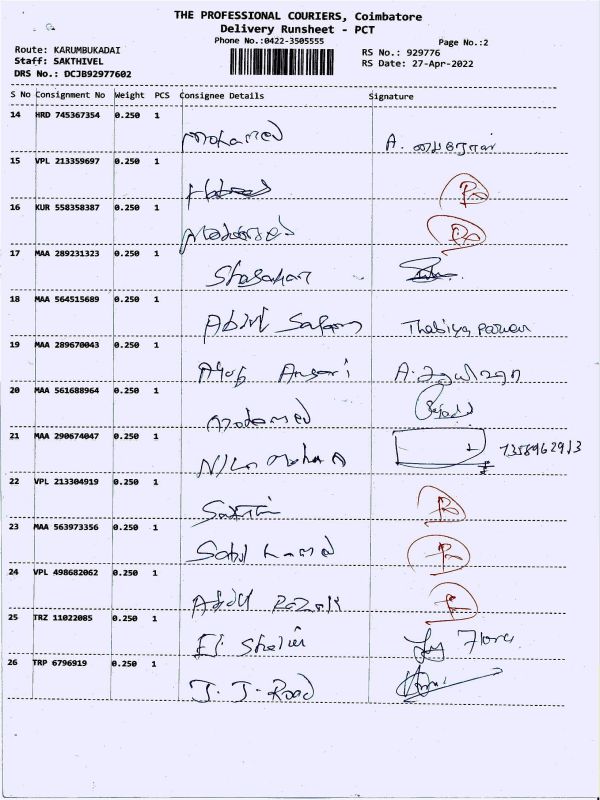 THE PROFESSIONAL COURIERS, Coimbatore
Delivery Runsheet - PCT
Phone No.:0422-3505555
Page No.:2
Route: KARUMBUKADAI
RS No.: 929776
Staff: SAKTHIVEL
RS Date: 27-Apr-2022
DRS No.: DCJB92977602
S No Consignment No Weight PCS Consignee Details Signature
14 HRD 745367354 0.250 1
Mohamed A.
15 VPL 213359697 0.250 1
16 KUR 558358387 0.250 1
17 MAA 289231323 0.250 1
18 MAA 564515689 0.250 1
Abdul Salam Thabiya Parveen
19 MAA 289670043 0.250 1
Ayub Ansari A.
20 MAA 561688964 0.250 1
Mohamed
21 MAA 290674047 0.250 1
7358962913
22 VPL 213304919 0.250 1
Sakthi
23 MAA 563973356 0.250 1
24 VPL 498682062 0.250 1
Abdul Razak
25 TRZ 11022085 0.250 1
26 TRP 6796919 0.250 1
J. J. Road